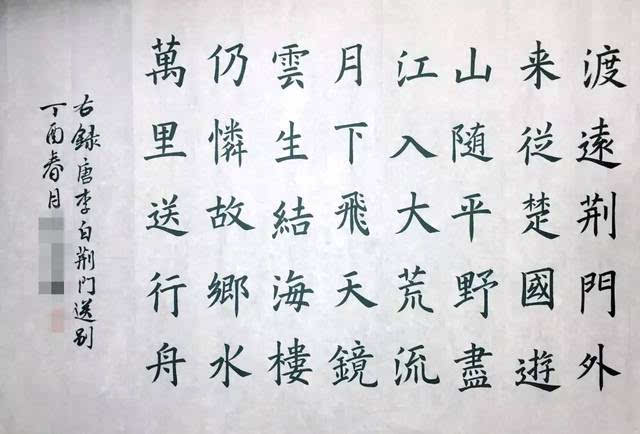 渡遠荆門外
来従楚國遊
山随平野盡
江入大荒流
月下飛天鏡
雲生結海樓
仍憐故鄉水
萬里送行舟
右録唐李白荆門送别
丁酉春月